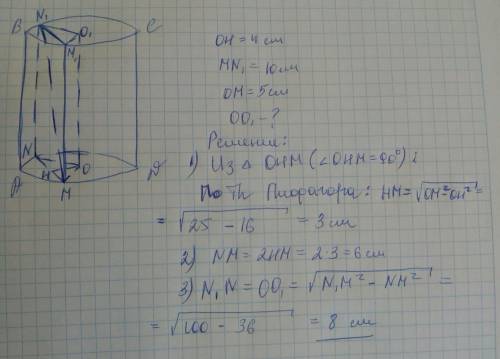 B N₁ O₁ C
M₁
N O
A H D
M
OH = 4 см
MN₁ = 10 см
OM = 5 см
OO₁ - ?
Решение:
1) Из △ OHM (∠OHM = 90°):
По Th Пифагора: HM = √OM² - OH² =
= √25 - 16 = 3 см
2) NM = 2HM = 2·3 = 6 см
3) N₁N = OO₁ = √N₁M² - NM² =
= √100 - 36 = 8 см